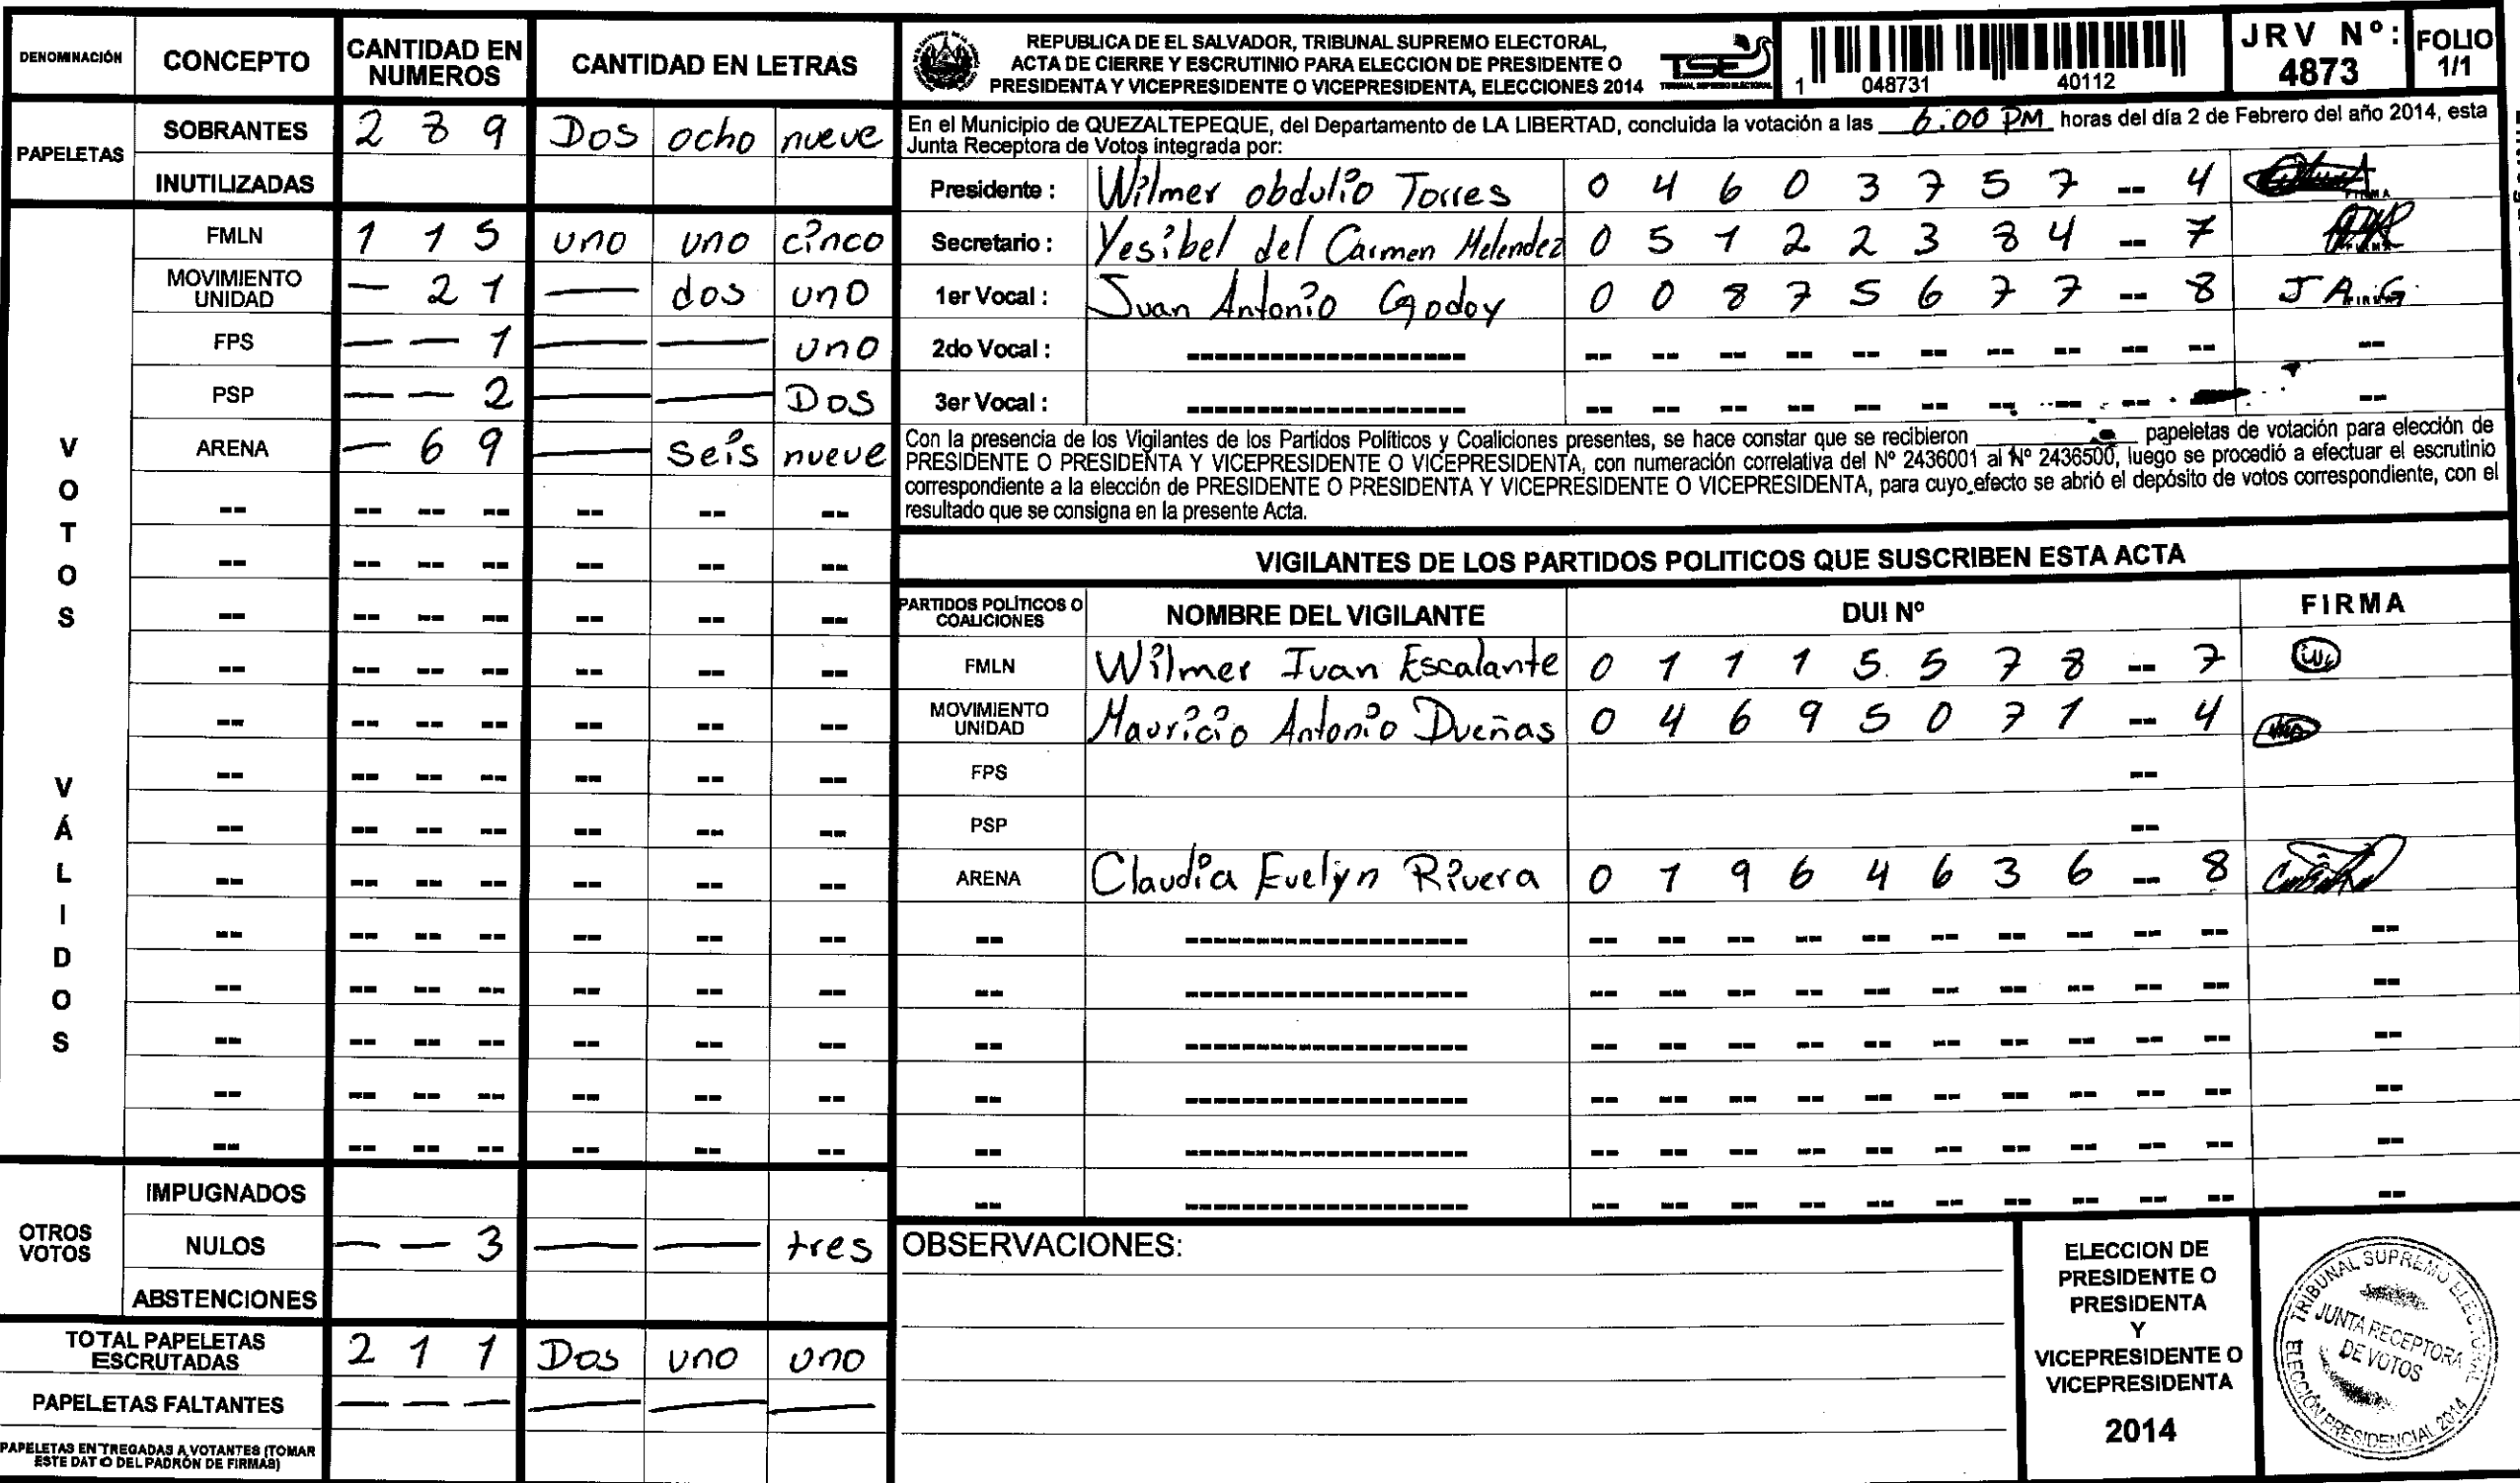 DENOMINACIÓN CONCEPTO CANTIDAD EN NUMEROS CANTIDAD EN LETRAS
PAPELETAS
SOBRANTES 2 8 9 Dos ocho nueve
INUTILIZADAS
VOTOS VÁLIDOS
FMLN 1 1 5 uno uno cinco
MOVIMIENTO UNIDAD — 2 1 — dos uno
FPS — — 1 — — uno
PSP — — 2 — — Dos
ARENA — 6 9 — seis nueve
-- -- -- -- -- -- --
-- -- -- -- -- -- --
-- -- -- -- -- -- --
-- -- -- -- -- -- --
-- -- -- -- -- -- --
-- -- -- -- -- -- --
-- -- -- -- -- -- --
-- -- -- -- -- -- --
-- -- -- -- -- -- --
-- -- -- -- -- -- --
-- -- -- -- -- -- --
-- -- -- -- -- -- --
-- -- -- -- -- -- --
OTROS VOTOS
IMPUGNADOS
NULOS — — 3 — — tres
ABSTENCIONES
TOTAL PAPELETAS ESCRUTADAS 2 1 1 Dos uno uno
PAPELETAS FALTANTES — — — — — —
PAPELETAS ENTREGADAS A VOTANTES (TOMAR
ESTE DATO DEL PADRÓN DE FIRMAS)
REPUBLICA DE EL SALVADOR, TRIBUNAL SUPREMO ELECTORAL,
ACTA DE CIERRE Y ESCRUTINIO PARA ELECCION DE PRESIDENTE O
PRESIDENTA Y VICEPRESIDENTE O VICEPRESIDENTA, ELECCIONES 2014
TSE
1 048731 40112
JRV Nº: 4873
FOLIO 1/1
En el Municipio de QUEZALTEPEQUE, del Departamento de LA LIBERTAD, concluida la votación a las 6:00 PM horas del día 2 de Febrero del año 2014, esta
Junta Receptora de Votos integrada por:
Presidente : Wilmer obdulio Torres 0 4 6 0 3 7 5 7 -- 4 FIRMA
Secretario : Yesibel del Carmen Melendez 0 5 1 2 2 3 8 4 -- 7
1er Vocal : Juan Antonio Godoy 0 0 8 7 5 6 7 7 -- 8 J A G
2do Vocal : -------------------- -- -- -- -- -- -- -- -- -- -- --
3er Vocal : -------------------- -- -- -- -- -- -- -- -- -- -- --
Con la presencia de los Vigilantes de los Partidos Políticos y Coaliciones presentes, se hace constar que se recibieron ______ papeletas de votación para elección de
PRESIDENTE O PRESIDENTA Y VICEPRESIDENTE O VICEPRESIDENTA, con numeración correlativa del Nº 2436001 al Nº 2436500, luego se procedió a efectuar el escrutinio
correspondiente a la elección de PRESIDENTE O PRESIDENTA Y VICEPRESIDENTE O VICEPRESIDENTA, para cuyo efecto se abrió el depósito de votos correspondiente, con el
resultado que se consigna en la presente Acta.
VIGILANTES DE LOS PARTIDOS POLITICOS QUE SUSCRIBEN ESTA ACTA
PARTIDOS POLÍTICOS O COALICIONES NOMBRE DEL VIGILANTE DUI Nº FIRMA
FMLN Wilmer Ivan Escalante 0 1 1 1 5 5 7 8 -- 7
MOVIMIENTO UNIDAD Mauricio Antonio Dueñas 0 4 6 9 5 0 7 1 -- 4
FPS --
PSP --
ARENA Claudia Evelyn Rivera 0 1 9 6 4 6 3 6 -- 8
-- -------------------- -- -- -- -- -- -- -- -- -- -- --
-- -------------------- -- -- -- -- -- -- -- -- -- -- --
-- -------------------- -- -- -- -- -- -- -- -- -- -- --
-- -------------------- -- -- -- -- -- -- -- -- -- -- --
-- -------------------- -- -- -- -- -- -- -- -- -- -- --
-- -------------------- -- -- -- -- -- -- -- -- -- -- --
OBSERVACIONES:
ELECCION DE
PRESIDENTE O
PRESIDENTA
Y
VICEPRESIDENTE O
VICEPRESIDENTA
2014
TRIBUNAL SUPREMO ELECTORAL
JUNTA RECEPTORA
DE VOTOS
ELECCIÓN PRESIDENCIAL 2014